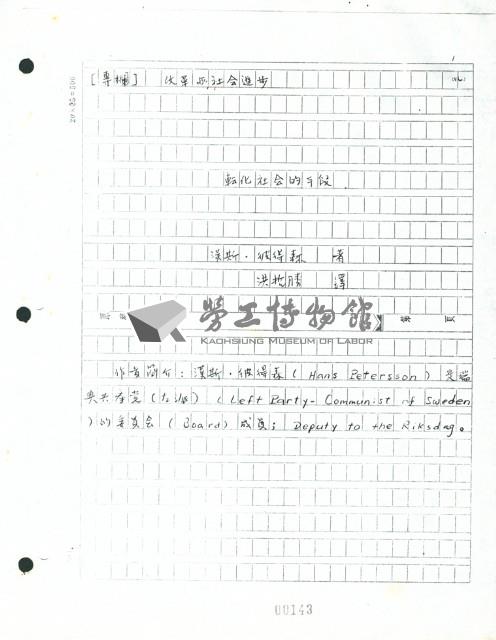 1
[專欄] 改革與社会進步
20×25=500
転化社会的手段
漢斯·彼得森 著
洪 勝 譯
勞工博物館
KAOHSIUNG MUSEUM OF LABOR
作者簡介:漢斯·彼得森(Hans Petersson)是瑞
典共產党(左派)(Left Party-Communist of Sweden
)的委員会(Board)成員;Deputy to the Riksdag。
00143